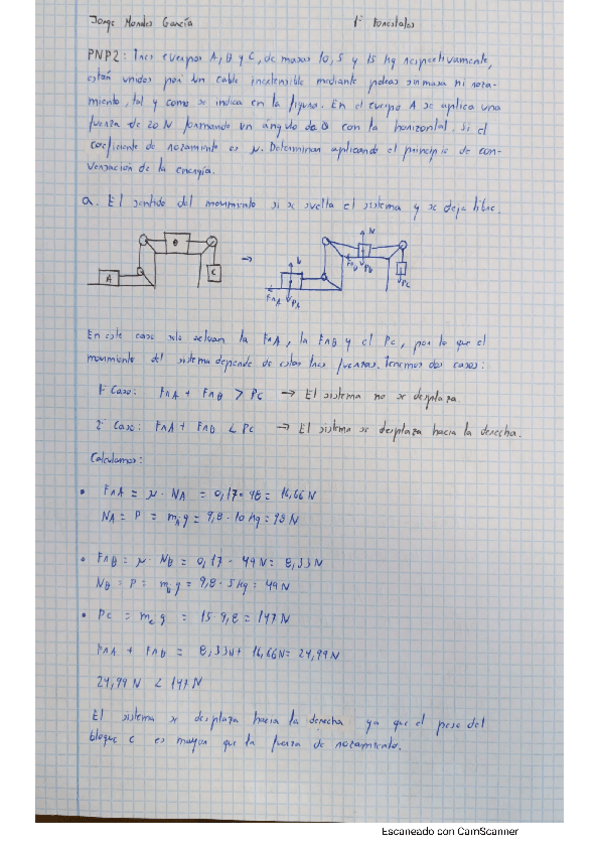 Jorge Mendes García 1º Forestales
PNP2: Tres cuerpos A, B y C, de masas 10, 5 y 15 kg respectivamente,
están unidos por un cable inextensible mediante poleas sin masa ni roza-
miento, tal y como se indica en la figura. En el cuerpo A se aplica una
fuerza de 20 N formando un ángulo de con la horizontal. Si el
coeficiente de rozamiento es μ. Determinar aplicando el principio de con-
servación de la energía.
a. El sentido del movimiento si se suelta el sistema y se deja libre.
A B C → N FrA PA N FrB PB PC
En este caso solo actuan la FrA, la FrB y el Pc, por lo que el
movimiento del sistema depende de estas tres fuerzas. Tenemos dos casos:
1º Caso: FrA + FrB > Pc → El sistema no se desplaza.
2º Caso: FrA + FrB < Pc → El sistema se desplaza hacia la derecha.
Calculamos:
• FrA = μ · NA = 0,17 · 98 = 16,66 N
NA = P = mA g = 9,8 · 10 kg = 98 N
• FrB = μ · NB = 0,17 · 49 N = 8,33 N
NB = P = mB g = 9,8 · 5 kg = 49 N
• Pc = mc g = 15 · 9,8 = 147 N
FrA + FrB = 8,33 N + 16,66 N = 24,99 N
24,99 N < 147 N
El sistema se desplaza hacia la derecha ya que el peso del
bloque c es mayor que la fuerza de rozamiento.
Escaneado con CamScanner